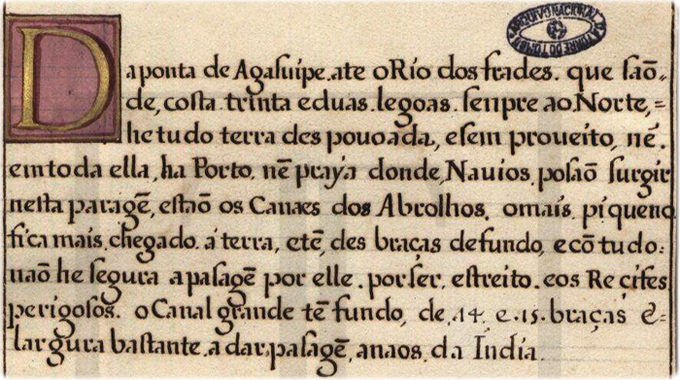 ARQUIVO NACIONAL DA TORRE DO TOMBO
Daponta de Agasuipe. ate oRio dos frades. que saõ.
de, costa. trinta e duas. legoas. senpre ao Norte,=
he tudo terra des pouoáda, e sem proueito, nẽ.
em toda ella, ha Porto. nẽ praya donde, Nauios. posaõ surgir
nesta paragẽ, estaõ os Canaes dos Abrolhos. o mais. piqueno
fica mais. chegado. á terra, e tẽ, des braças de fundo, e cõ tudo.
naõ he segura a pasagẽ por elle. por ser. estreito. e os Recifes
perigosos. o Canal grande tẽ fundo, de .14. e .15. braças &
largura bastante. a dar. pasagẽ, a naos. da India.